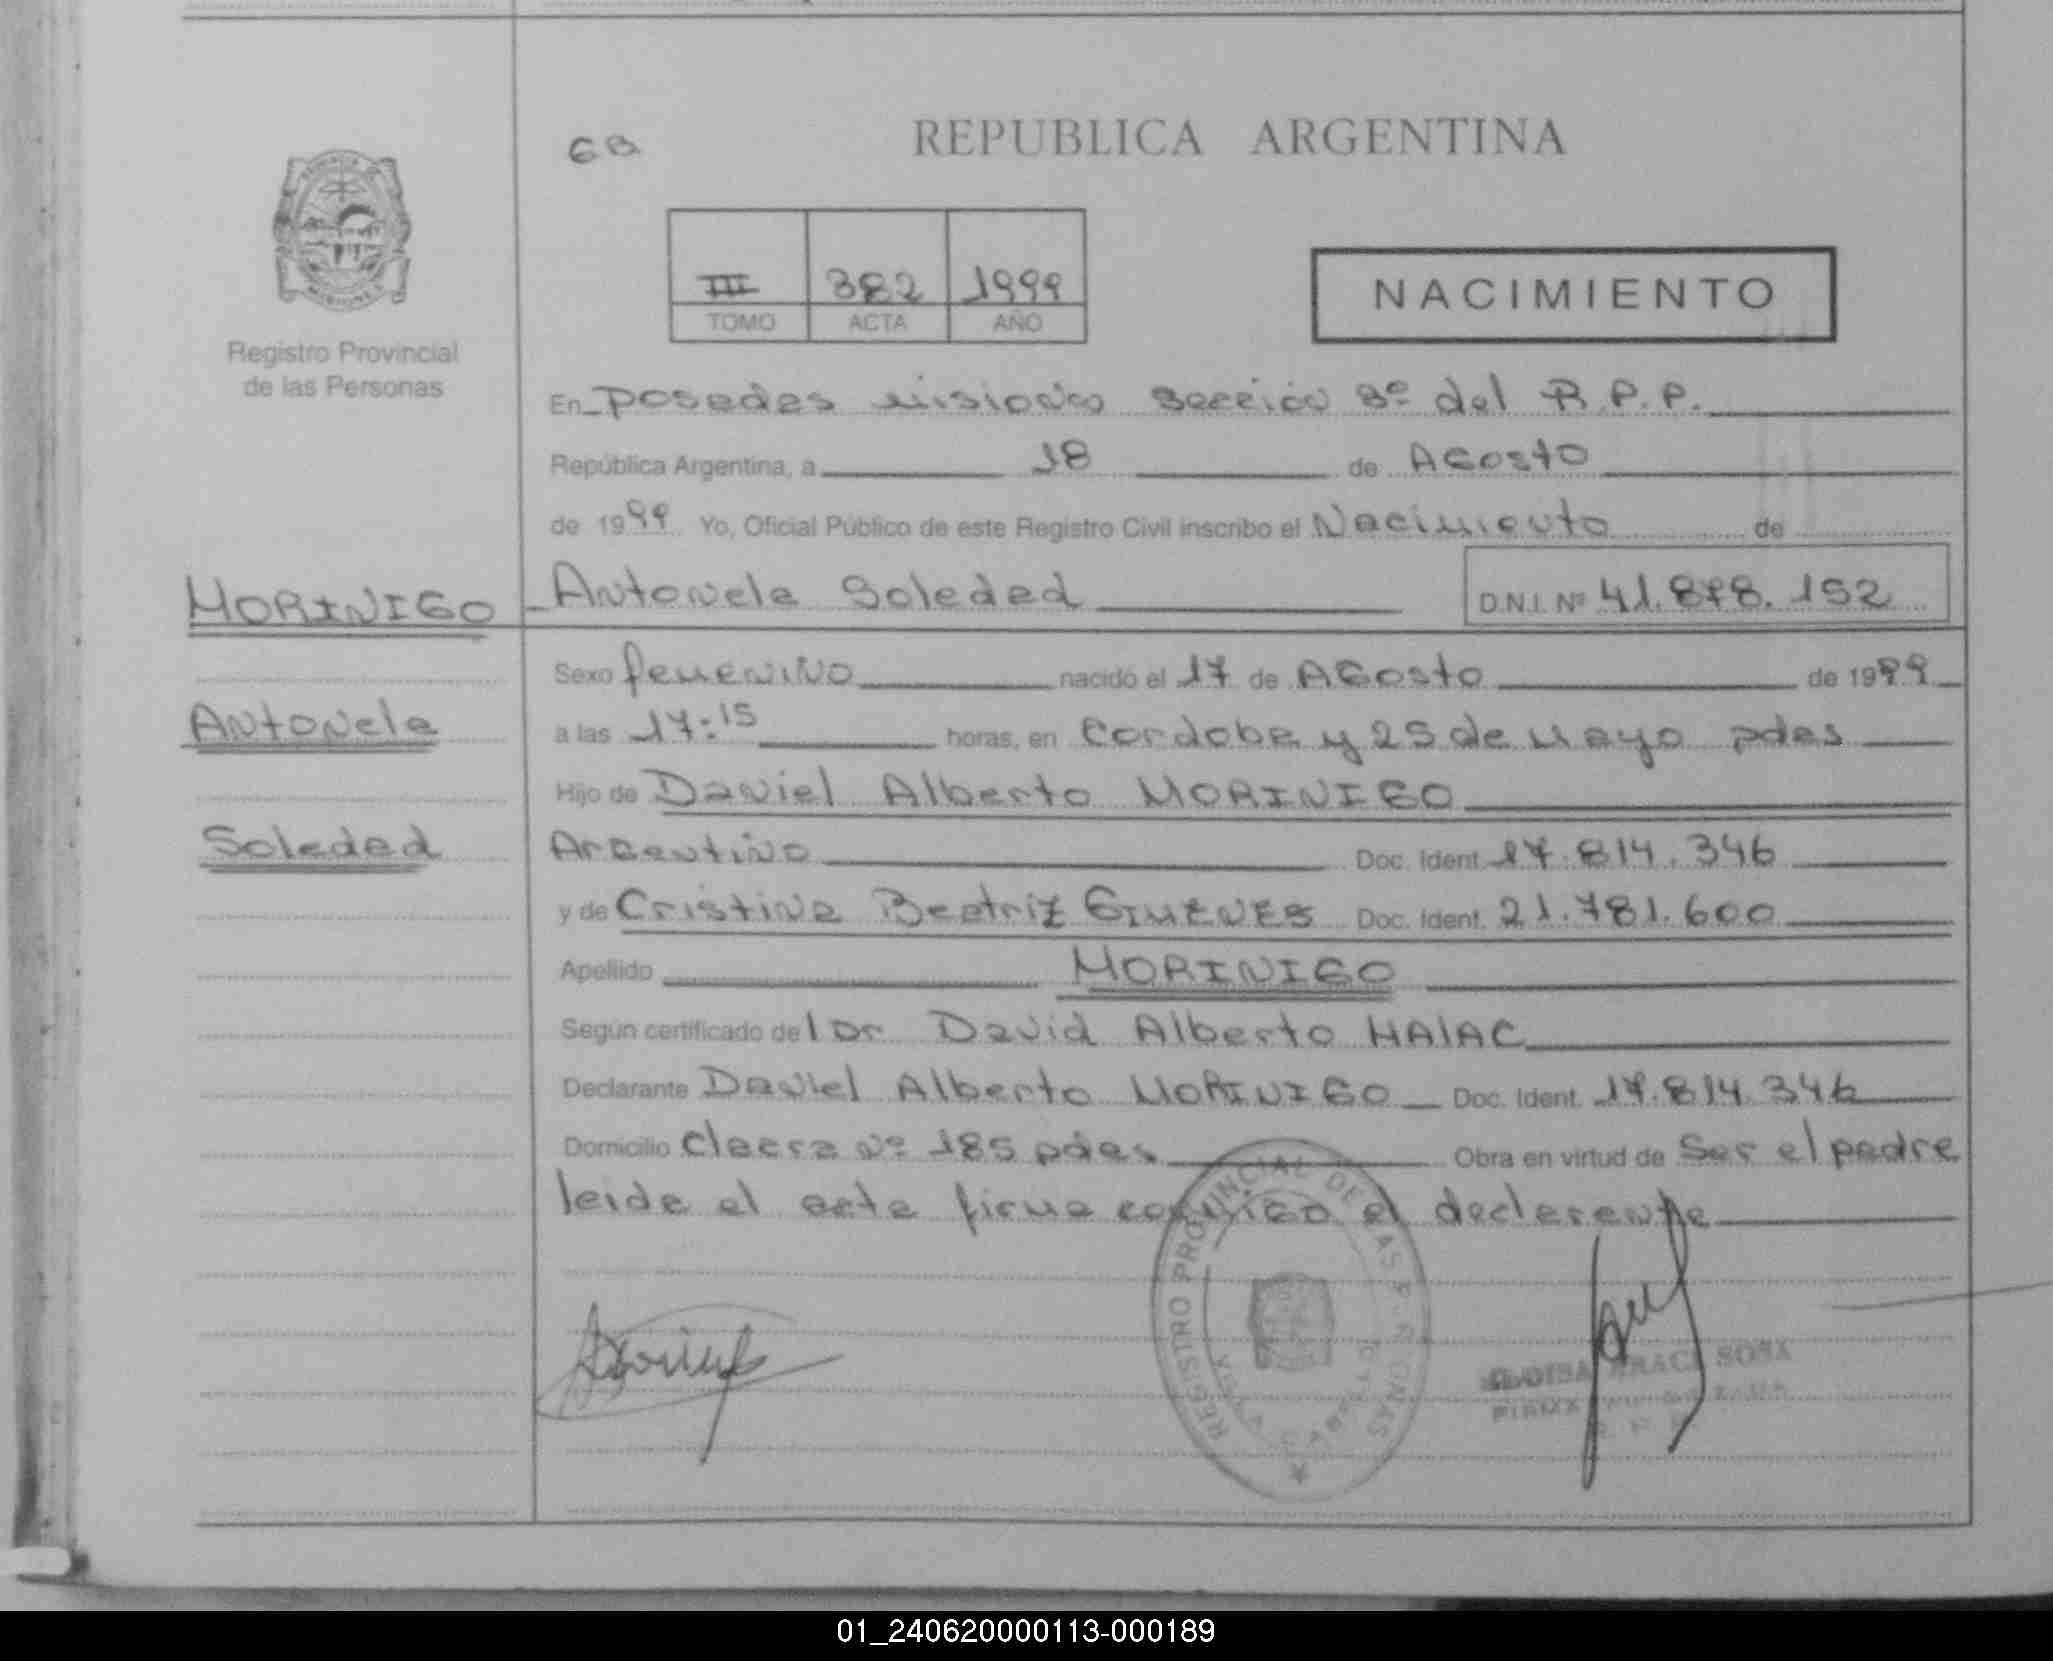 REPUBLICA ARGENTINA
III 382 1999
TOMO ACTA AÑO
NACIMIENTO
Registro Provincial
de las Personas
En Posadas Misiones Sección 3º del R.P.P.
República Argentina, a 18 de Agosto
de 1999 Yo, Oficial Público de este Registro Civil inscribo el Nacimiento de
MORINIGO Antonela Soledad D.N.I. Nº 41.878.152
Sexo femenino nacido el 17 de Agosto de 1999
Antonela
a las 17:15 horas, en Cordoba y 25 de Mayo pdas
Hijo de Daniel Alberto MORINIGO
Soledad
Argentino Doc. Ident. 17.814.346
y de Cristina Beatriz GIMENES Doc. Ident. 21.781.600
Apellido MORINIGO
Según certificado del Dr. David Alberto HALAC
Declarante Daniel Alberto MORINIGO Doc. Ident. 17.814.346
Domicilio Nº 185 pdas Obra en virtud de Ser el padre
leida el acta firma conmigo el declarante
REGISTRO PROVINCIAL DE LAS PERSONAS
SOSA
01_240620000113-000189